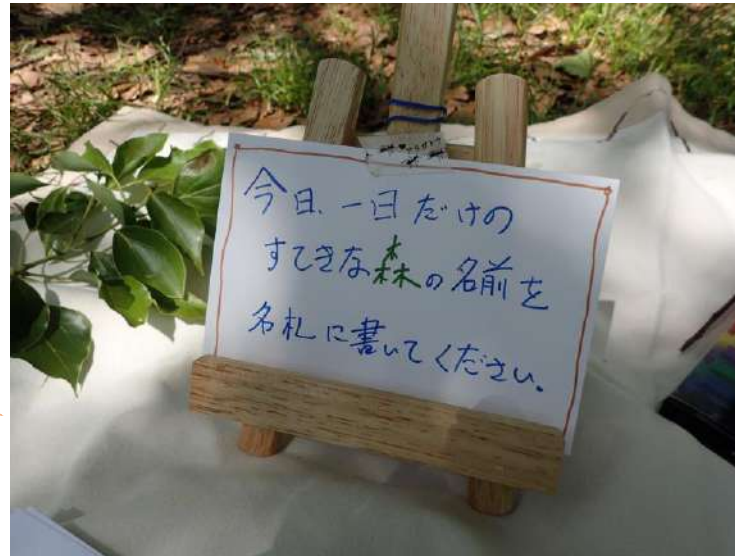 今日、一日だけの
すてきな森の名前を
名札に書いてください。